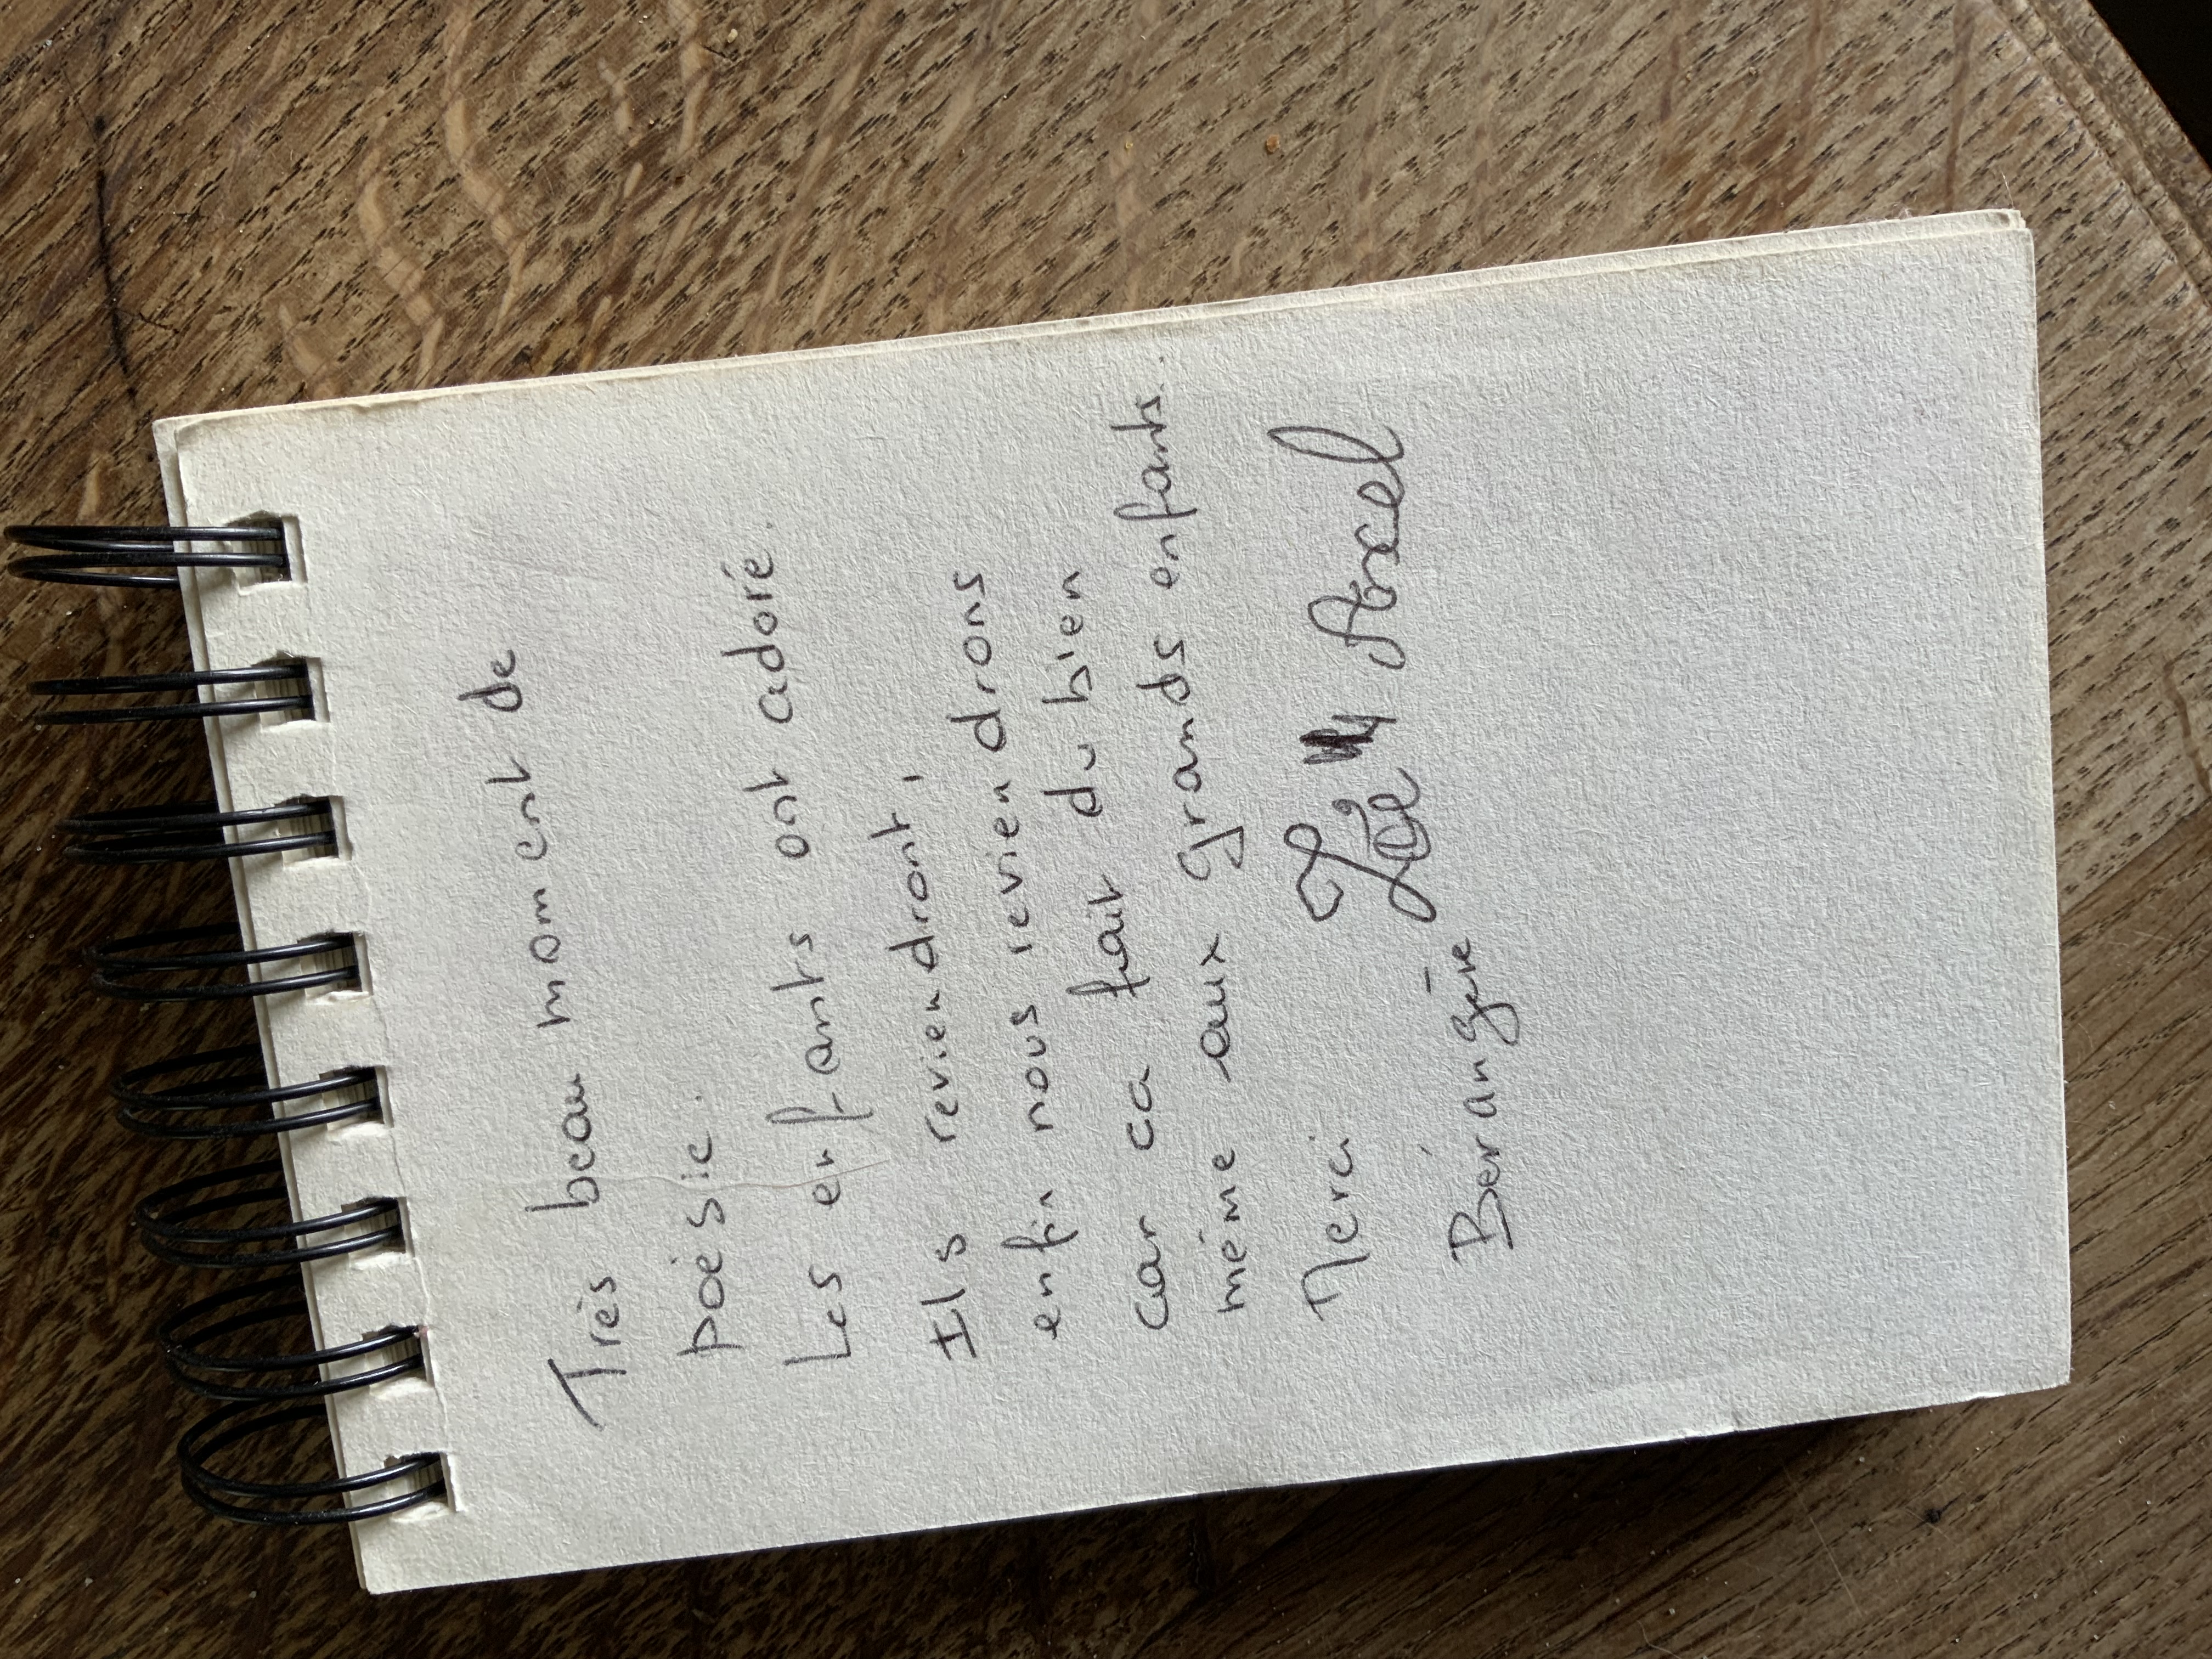 Très beau moment de
poésie.
Les enfants ont adoré.
Ils reviendront,
enfin nous reviendrons
car ca fait du bien
même aux grands enfants.
Merci Zoé Axcel
Bérangère